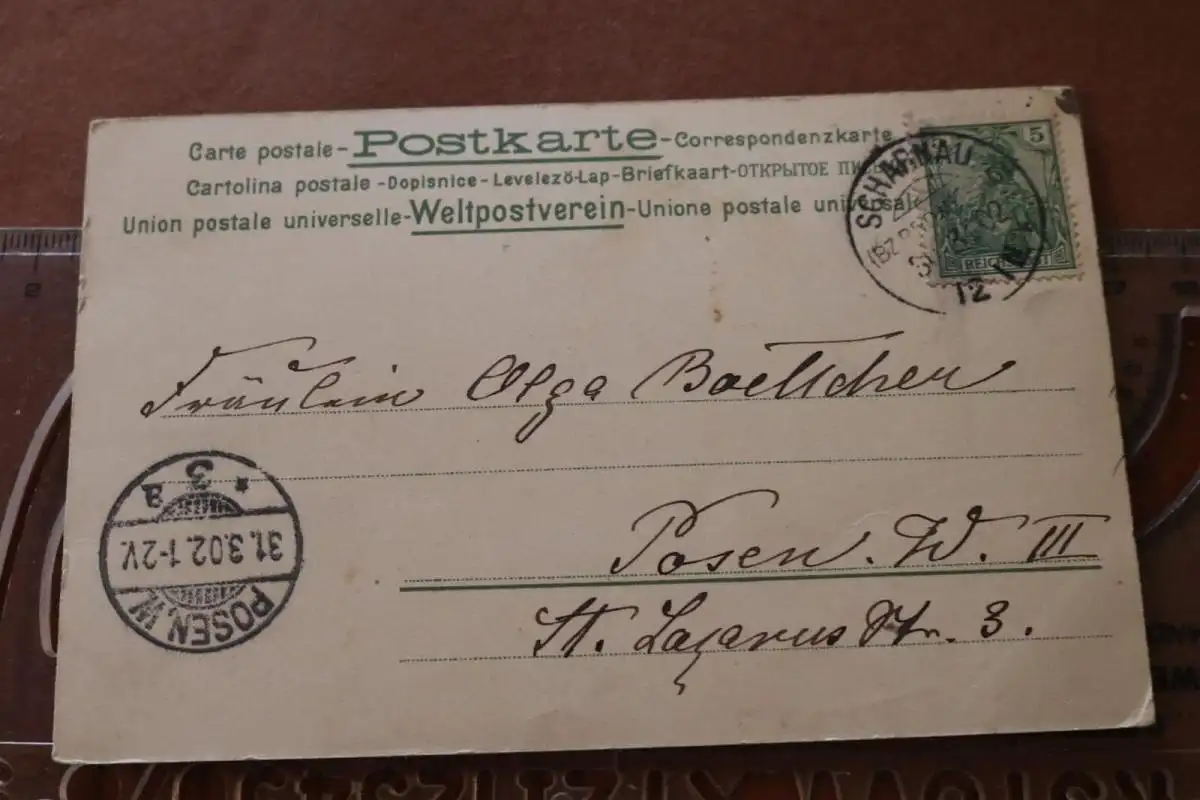 Carte postale-Postkarte-Correspondenzkarte
Cartolina postale-Dopisnice-Levelező-Lap-Briefkaart-ОТКРЫТОЕ
Union postale universelle-Weltpostverein-Unione postale universale
5
REICHSPOST
SCHARNAU
12
Fräulein Olga Boettcher
Posen. W. III
St. Lazarus Str. 3.
* 3 a
31.3.02.1-2V.
POSEN.W.